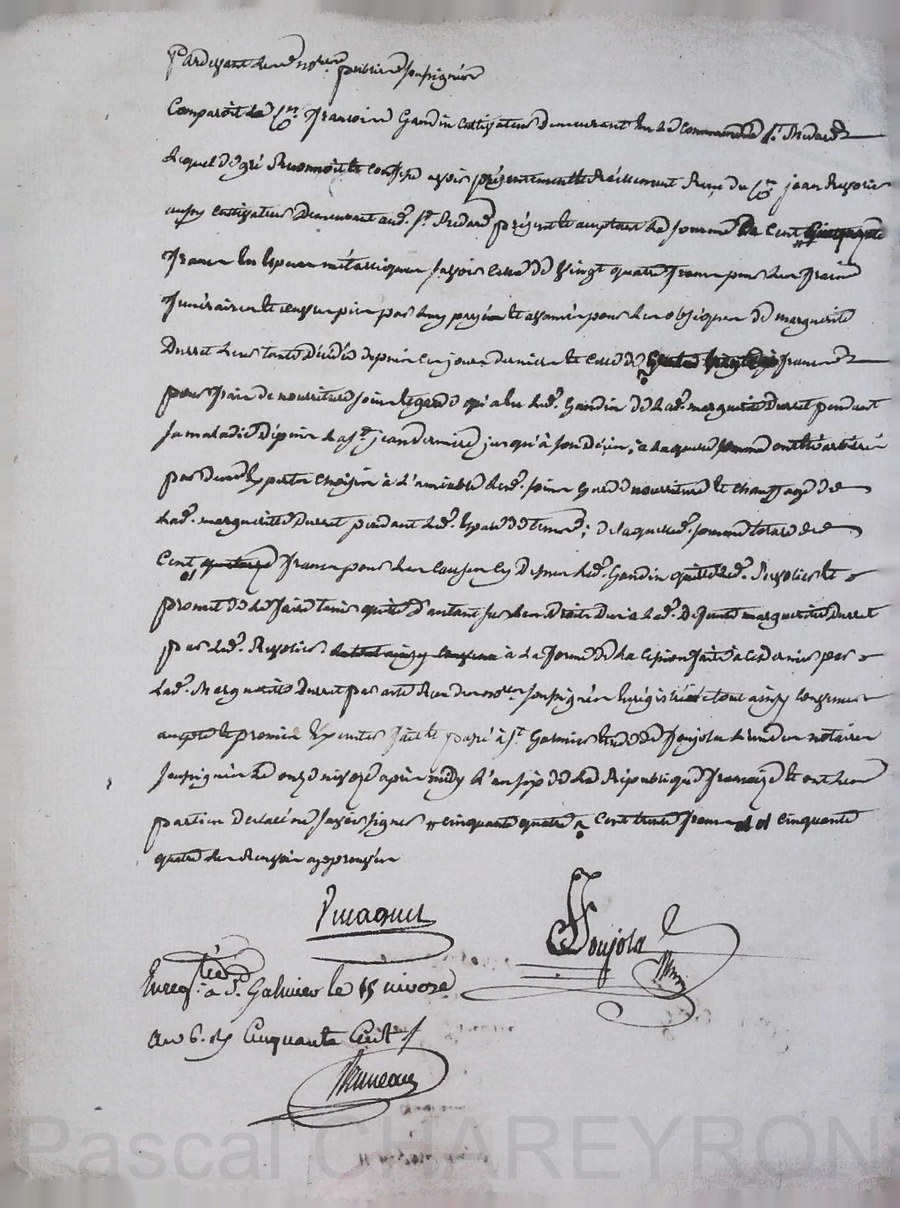 Pardevant les nores publics soussignés
Comparoit le Cn françois Gandin cultivateur demeurant en la commune de St Médard
Lequel de gré Reconnoit et confesse avoir présentement et Réellement Reçu du Cn jean
aussy cultivateur demeurant aud. St Médard présent et acceptant la somme de Cent
francs en espèces métalliques, savoir celle de vingt quatre francs pour les frais
funéraires et par luy payés et avancés pour les obsèques de marguerite
Durret leur tante décédée depuis ces jours derniers et celle de francs
pour frais de nourriture soins et garde qu'a eu led. Gandin de lad. marguerite Durret pendant
sa maladie depuis la St jean dernière jusqu'à son décès, à laquelle somme ont été arbitrés
par experts choisis à l'amiable lesd. soins garde nourriture et chauffage de
lad. marguerite Durret pendant led. espace de tems; de laquelle somme totale de
Cent francs pour les causes cy dessus led. Gandin quitte led. et
promet de le faire tenir quitte d'autant sur les droits dus à lad. défunte marguerite Durret
par led. à la forme de la cession faite à ce dernier par
lad. Marguerite Durret par acte Reçu des nores soussignés enregistré tout ainsy convenu
accepté et promis exécuter fait et passé à St Galmier étude de Foujols l'un des notaires
soussignés le onze nivoze après midy l'an six de la République françoize et ont les
parties déclaré ne savoir signer cinquante quatre Cent trente francs et cinquante
quatre les Renvois approuvés
Foujols
Nre
Enregistré à St Galmier le 15 nivose
an 6. Rx Cinquante Cent
Bruneau
Pascal CHAREYRON